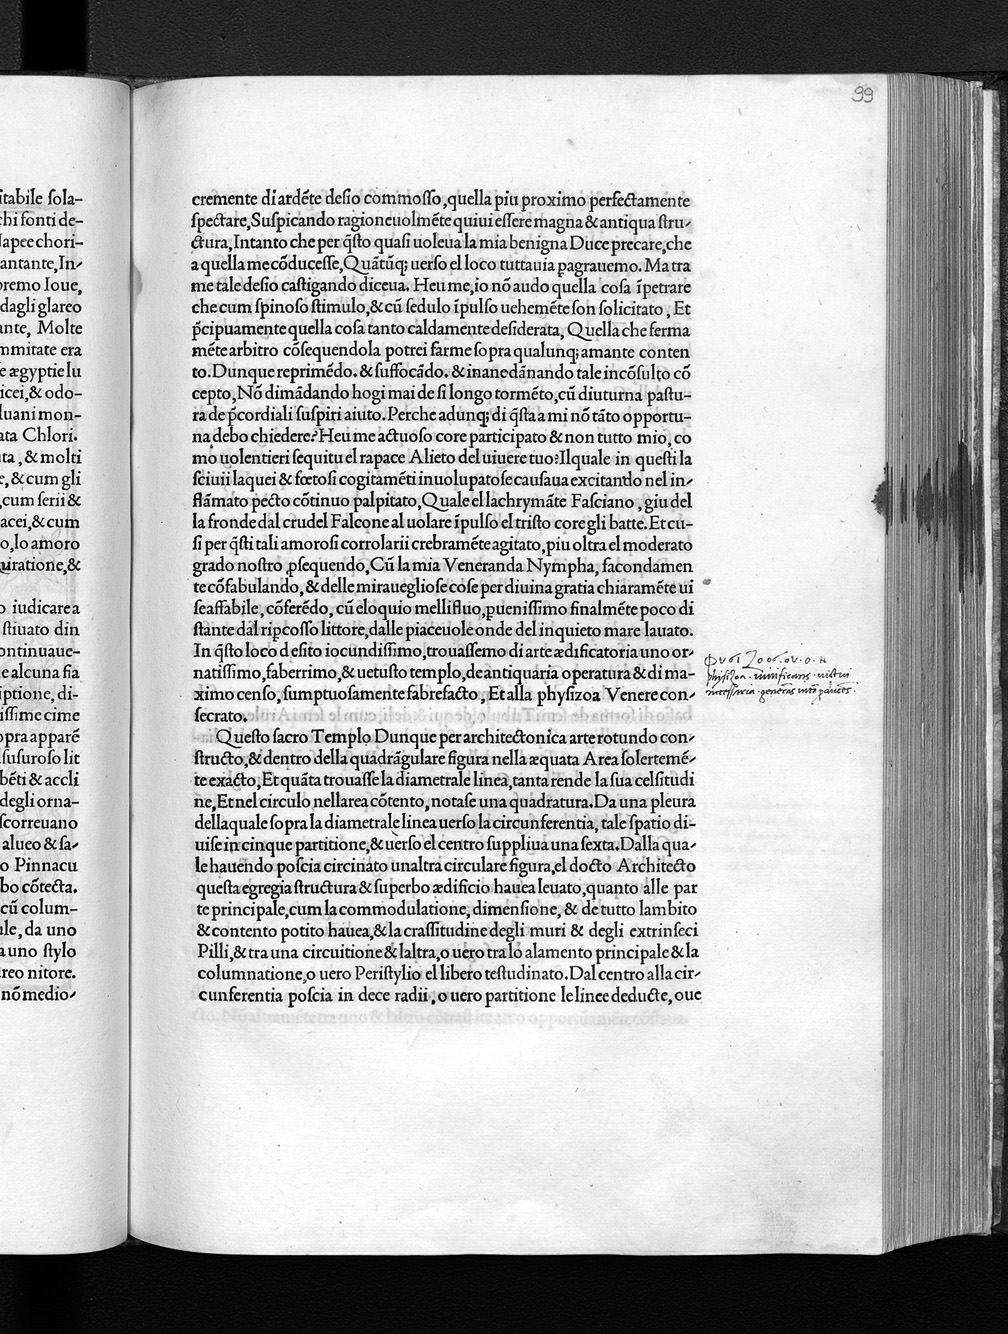 99
itabile sola-
chi fonti de-
Iapee chori-
antante,In-
premo Ioue,
dagli glareo
ante, Molte
mmitate era
e ægyptie lu
icei,& odo-
luani mon-
ata Chlori.
ta,& molti
e,& cum gli
,cum serii &
acei,& cum
o,lo amoro
uiratione,&
o iudicare a
stiuato din
ontinuaue-
e alcuna fia
iptione, di-
issime cime
opra apparẽ
susuroso lit
bẽti & accli
degli orna-
scorreuano
alueo & sa-
o Pinnacu
bo cõtecta.
cũ colum-
ule, da uno
a uno stylo
reo nitore.
nõ medio-
cremente di ardẽte desio commosso,quella piu proximo perfectamente
spectare,Suspicando ragioneuolmẽte quiui essere magna & antiqua stru-
ctura,Intanto che per q̃sto quasi uoleua la mia benigna Duce precare,che
a quella me cõducesse,Quãtũq; uerso el loco tuttauia pagrauemo. Ma tra
me tale desio castigando diceua. Heu me,io nõ audo quella cosa ĩpetrare
che cum spinoso stimulo,& cũ sedulo ĩpulso uehemẽte son solicitato, Et
p̃cipuamente quella cosa tanto caldamente desiderata, Quella che ferma
mẽte arbitro cõsequendola potrei farme sopra qualunq; amante conten
to. Dunque reprimẽdo. & suffocãdo. & inane dãnando tale incõsulto cõ
cepto, Nõ dimãdando hogi mai de si longo tormẽto,cũ diuturna pastu-
ra de p̃cordiali suspiri aiuto. Perche adunq; di q̃sta a mi nõ tãto opportu-
na debo chiedere? Heu me actuoso core participato & non tutto mio, co
mo uolentieri sequitu el rapace Alieto del uiuere tuo? Ilquale in questi la
sciuii laquei & fœtosi cogitamẽti inuolupatose causaua excitando nel in-
flãmato pecto cõtinuo palpitato, Quale el lachrymãte Fasciano, giu del
la fronde dal crudel Falcone al uolare ĩpulso el tristo core gli batte. Et cu-
si per q̃sti tali amorosi corrolarii crebramẽte agitato,piu oltra el moderato
grado nostro ꝓsequendo, Cũ la mia Veneranda Nympha, facondamen
te cõfabulando,& delle mirauegliose cose per diuina gratia chiaramẽte ui
se affabile, cõferẽdo, cũ eloquio mellifluo,puenissimo finalmẽte poco di
stante dal ripcosso littore,dalle piaceuole onde del inquieto mare lauato.
In q̃sto loco desito iocundissimo,trouassemo di arte ædificatoria uno or-
natissimo,faberrimo,& uetusto templo,de antiquaria operatura & di ma-
ximo censo, sumptuosamente fabrefacto, Et alla physizoa Venere con-
secrato.
Questo sacro Templo Dunque per architectonica arte rotundo con-
structo,& dentro della quadrãgulare figura nella æquata Area solertemẽ-
te exacto, Et quãta trouasse la diametrale linea,tanta rende la sua celsitudi
ne, Et nel circulo nellarea cõtento, notase una quadratura. Da una pleura
dellaquale sopra la diametrale linea uerso la circunferentia, tale spatio di-
uise in cinque partitione,& uerso el centro suppliua una sexta. Dalla qua-
le hauendo poscia circinato unaltra circulare figura,el docto Architecto
questa egregia structura & superbo ædificio hauea leuato,quanto alle par
te principale,cum la commodulatione, dimensione, & de tutto lambito
& contento potito hauea,& la crassitudine degli muri & degli extrinseci
Pilli,& tra una circuitione & laltra,o uero tra lo alamento principale & la
columnatione,o uero Peristylio el libero testudinato. Dal centro alla cir-
cunferentia poscia in dece radii, o uero partitione le linee deducte, oue
physizoa . uiuificans